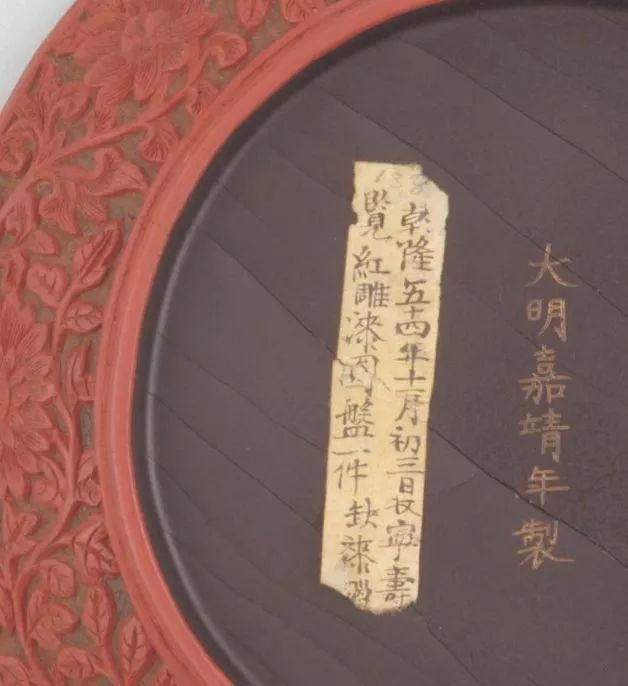 大明嘉靖年製
乾隆五十四年十一月初三日收寧壽
覽 紅雕漆圓盤一件 缺漆